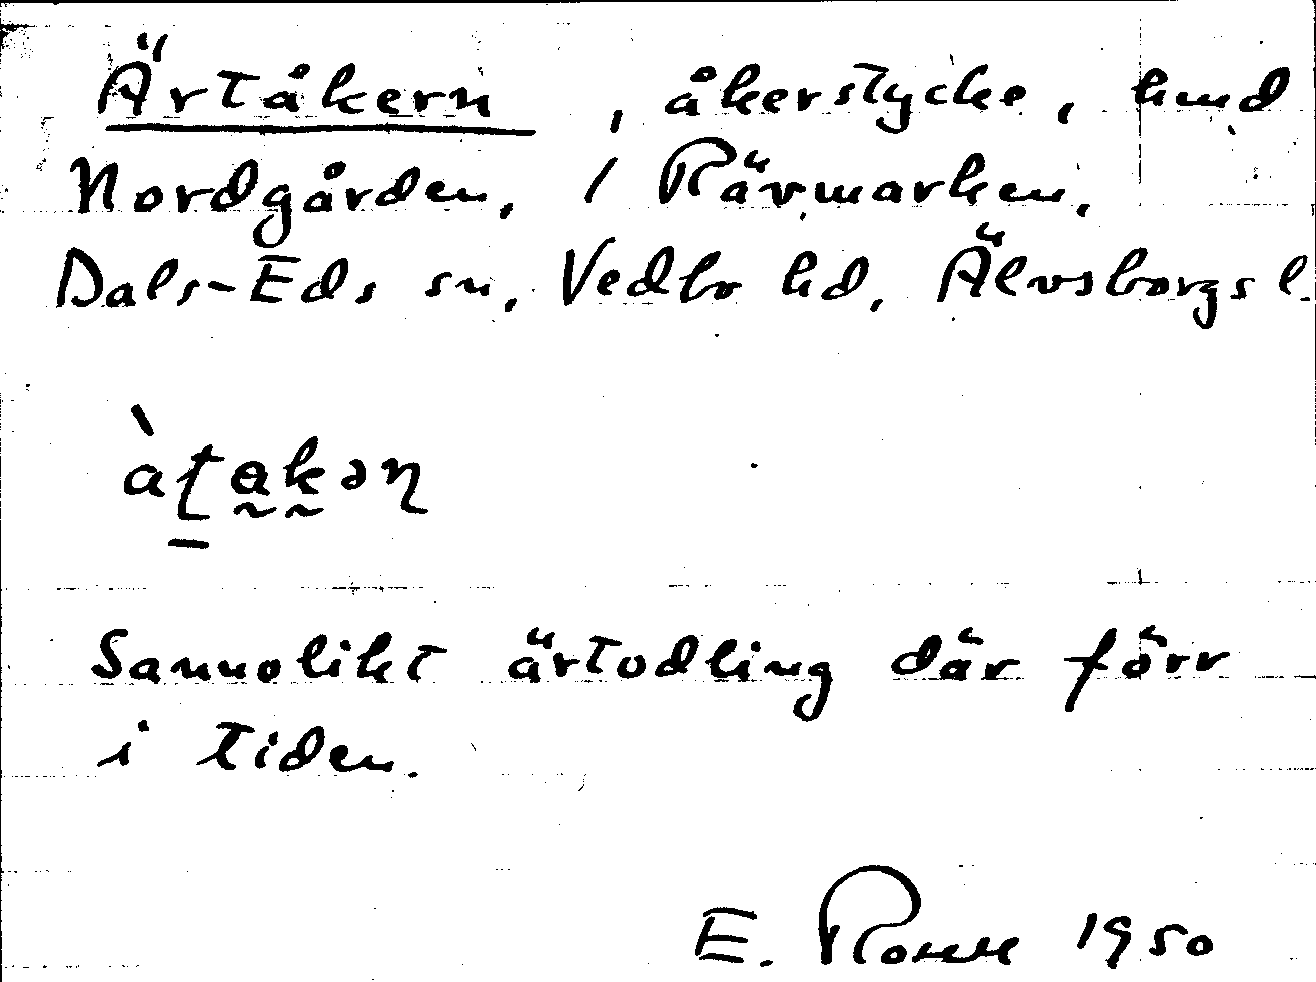 Ärtåkern, åkerstycke, hmd
Nordgården, 1 Rävmarken,
Dals-Eds sn, Vedbo hd, Älvsborgs l.
Sannolikt ärtodling där förr
i tiden.
E. 1950